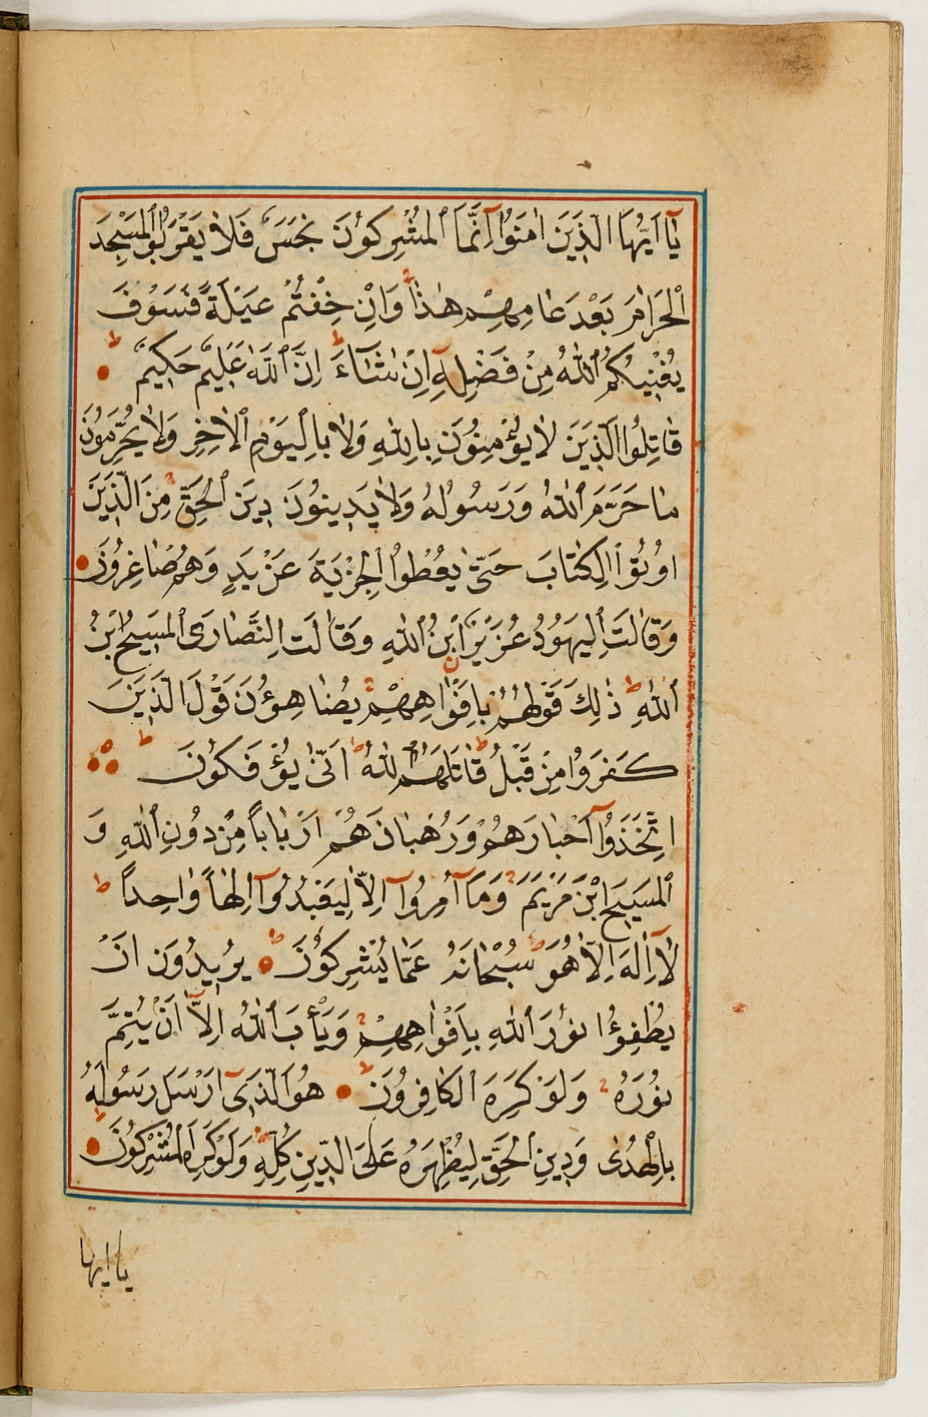 يَا اَيُّهَا الَّذِينَ اٰمَنُوا اِنَّمَا الْمُشْرِكُونَ نَجَسٌ فَلَا يَقْرَبُوا الْمَسْجِدَ
الْحَرَامَ بَعْدَ عَامِهِمْ هٰذَا وَاِنْ خِفْتُمْ عَيْلَةً فَسَوْفَ
يُغْنِيكُمُ اللّٰهُ مِنْ فَضْلِهِ اِنْ شَٓاءَ اِنَّ اللّٰهَ عَلِيمٌ حَكِيمٌ
قَاتِلُوا الَّذِينَ لَا يُؤْمِنُونَ بِاللّٰهِ وَلَا بِالْيَوْمِ الْاٰخِرِ وَلَا يُحَرِّمُونَ
مَا حَرَّمَ اللّٰهُ وَرَسُولُهُ وَلَا يَدِينُونَ دِينَ الْحَقِّ مِنَ الَّذِينَ
اُوتُوا الْكِتَابَ حَتّٰى يُعْطُوا الْجِزْيَةَ عَنْ يَدٍ وَهُمْ صَاغِرُونَ
وَقَالَتِ الْيَهُودُ عُزَيْرٌ ابْنُ اللّٰهِ وَقَالَتِ النَّصَارَى الْمَسِيحُ ابْنُ
اللّٰهِ ذٰلِكَ قَوْلُهُمْ بِاَفْوَاهِهِمْ يُضَاهِؤُنَ قَوْلَ الَّذِينَ
كَفَرُوا مِنْ قَبْلُ قَاتَلَهُمُ اللّٰهُ اَنّٰى يُؤْفَكُونَ
اِتَّخَذُوا اَحْبَارَهُمْ وَرُهْبَانَهُمْ اَرْبَاباً مِنْ دُونِ اللّٰهِ وَ
الْمَسِيحَ ابْنَ مَرْيَمَ وَمَا اُمِرُوا اِلَّا لِيَعْبُدُوا اِلٰهاً وَاحِداً
لَا اِلٰهَ اِلَّا هُوَ سُبْحَانَهُ عَمَّا يُشْرِكُونَ يُرِيدُونَ اَنْ
يُطْفِؤُا نُورَ اللّٰهِ بِاَفْوَاهِهِمْ وَيَأْبَ اللّٰهُ اِلَّا اَنْ يُتِمَّ
نُورَهُ وَلَوْ كَرِهَ الْكَافِرُونَ هُوَ الَّذِى اَرْسَلَ رَسُولَهُ
بِالْهُدٰى وَدِينِ الْحَقِّ لِيُظْهِرَهُ عَلَى الدِّينِ كُلِّهِ وَلَوْ كَرِهَ الْمُشْرِكُونَ
يا ايها